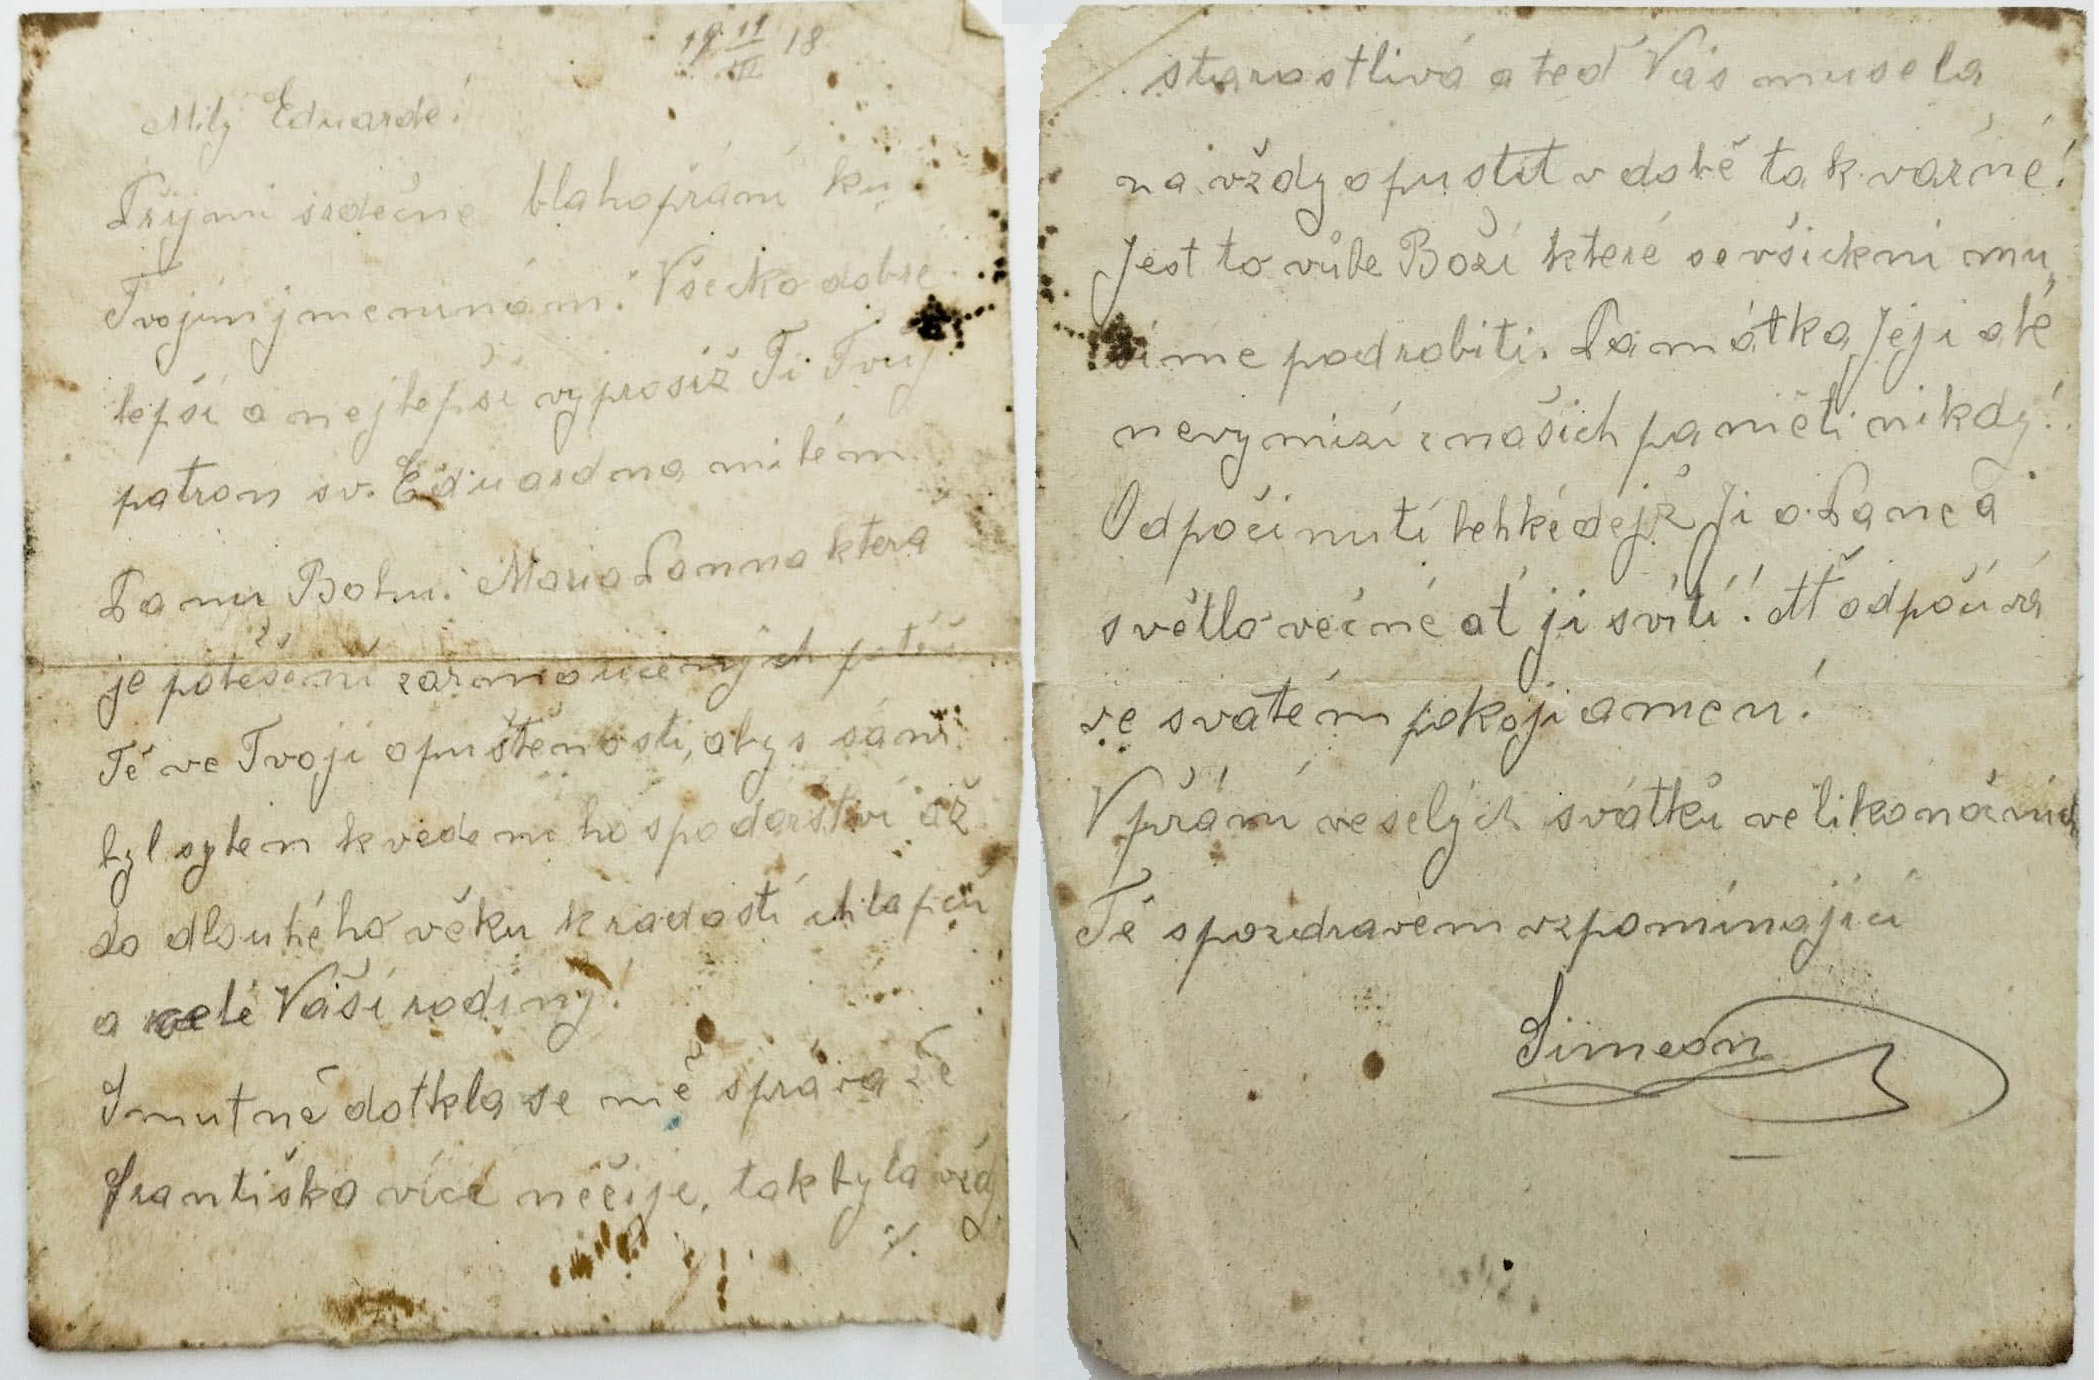 19 11/III 18
Milý Eduarde!
Přijmi srdečné blahopřání ku
Tvojim jmeninám! Všecko dobré
lepší a nejlepší vyprosiž Ti Tvůj
patron sv. Eduard na milém
Panu Bohu! Maria Panna která
je potěšení zarmoucených potěš
Tě ve Tvoji opuštěnosti, abys sám
byl sylen k vedení hospodářství až
do dlouhého věku k radosti chlapců
a celé Vaší rodiny!
Smutně dotkla se mě správa že
Františka více nežije, tak byla vždy
./.
starostlivá a teď Vás musela
na vždy opustit v době tak vážné!
Jest to vůle Boží které se všickni mu„
síme podrobiti. Památka Její ale
nevymizí z našich pamětí nikdy!
Odpočinutí lehké dejž Ji o Pane a
světlo věčné ať ji svítí! Ať odpočívá
ve svatém pokoji amen!
V přání veselých svátků velikonočních
Tě s pozdravem vzpomínající
Simeon